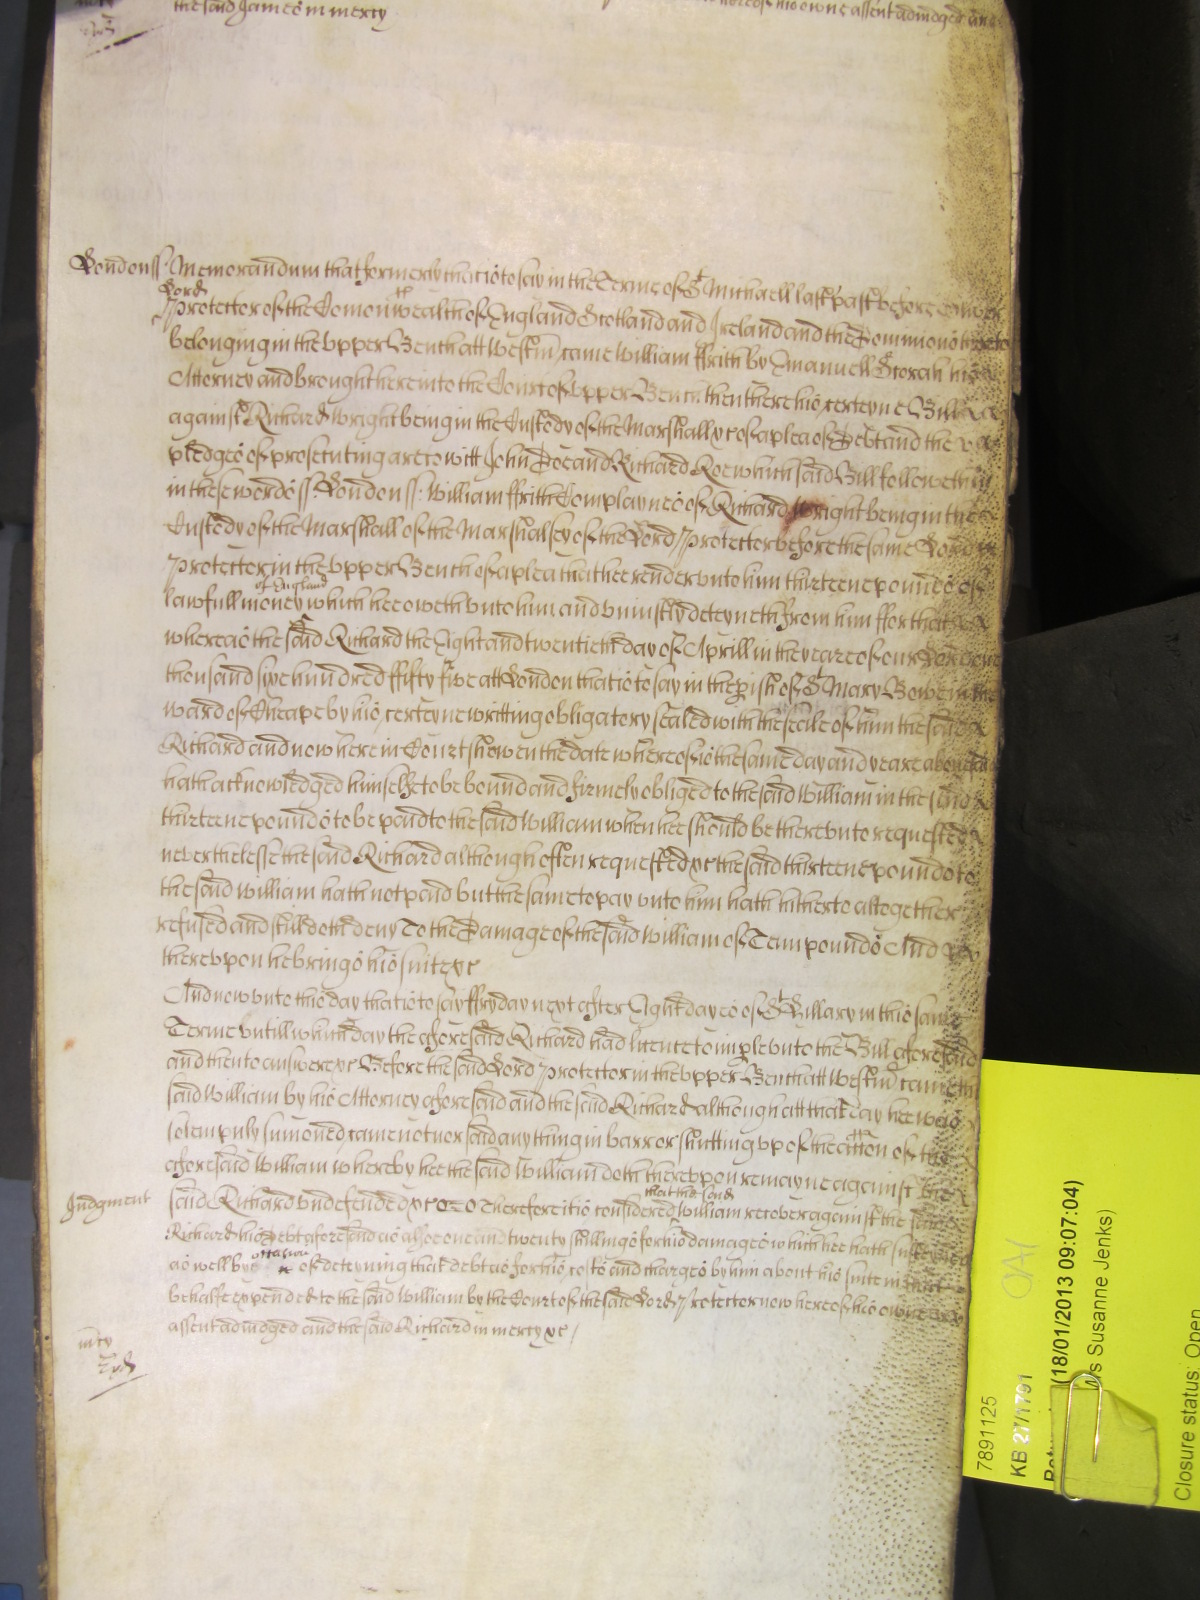 the said James in mercy
hereof his owne assent adiudged and
London ss Memorandum that formerly that is to say in the Terme of St Michaell last past before Oliver
Lord
Protector of the Comonwealth of England Scotland and Ireland and the Dominions thereto
belonging in the vpper Bench att Westm came William ffrith by Emanuell Storah his
Attorney and brought here into the Court of vpper Bench then there his certeyne Bill
against Richard Wright being in the Custody of the Marshall &c of a plea of Debt and there are
pledges of prosecuting are to witt John Doe and Richard Roe which said Bill followeth
in these words ss London ss William ffrith Complaynes of Richard Wright being in the
Custody of the Marshall of the Marshalsey of the Lord Protector before the same Lord
Protector in the vpper Bench of a plea that hee render vnto him thirteene pounds of
of England
lawfull money which hee oweth vnto him and vniustly deteyneth from him ffor that
whereas the said Richard the Eight and twentieth day of Aprill in the yeare of our Lord one
thousand sixe hundred ffifty five att London that is to say in the pish of St Mary Bowe in the
ward of Cheape by his certeyne writting obligatory sealed with the seale of him the said
Richard and now here in Court shewen the date whereof is the same day and yeare abovesaid
hath acknowledged himselfe to be bound and firmely obliged to the said William in the said
thirteene pounds to be paid to the said William when hee should be therevnto requested
neverthelesse the said Richard although often requested &c the said thirteene pounds to
the said William hath not paid but the same to pay vnto him hath hitherto altogether
refused and still doth deny To the Damage of the said William of Tenn pounds And
therevpon he brings his suite &c
And now vnto this day that is to say ffryday next after Eight dayes of St Hillary in this same
Terme vntill which day the aforesaid Richard had licence to imple vnto the Bill aforesaid
and then to answere &c Before the said Lord Protector in the vpper Bench att Westm came the
said William by his Attorney aforesaid and the said Richard although att that day hee was
solempnly sumoned came not nor said any thing in barr or shutting vp of the accon of the
aforesaid William whereby hee the said William doth therevpon remayne against the
that the said
Judgment said Richard vndefended &c Therefore it is considered William recover against the said
Richard his Debt aforesaid as alsoe one and twenty shillings for his damages which hee hath susteyned
occasion
as well by of deteyning that debt as for his costs and charges by him about his suite in that
behalfe expended to the said William by the Court of the said Lord Protector now here of his owne
assent adiudged and the said Richard in mercy &c
mcy
7891125
KB 27/1791
(18/01/2013 09:07:04)
Susanne Jenks)
Closure status: Open